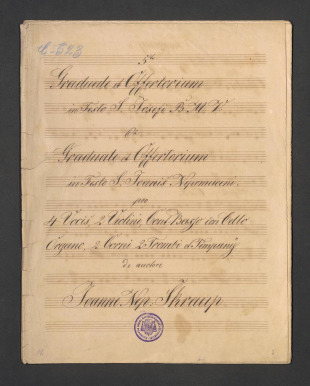 5ta
Graduale et Offertorium
in Festo S. Josefi B. M. V.
6ta
Graduale et Offertorium
in Festo S. Joanis Nepomuceni
per
4 Voci, 2 Violini, Cont Basso con Cello
Organo, 2 Corni 2 Trombi et Timpani
de auctore
Joanne Nep. Skraup